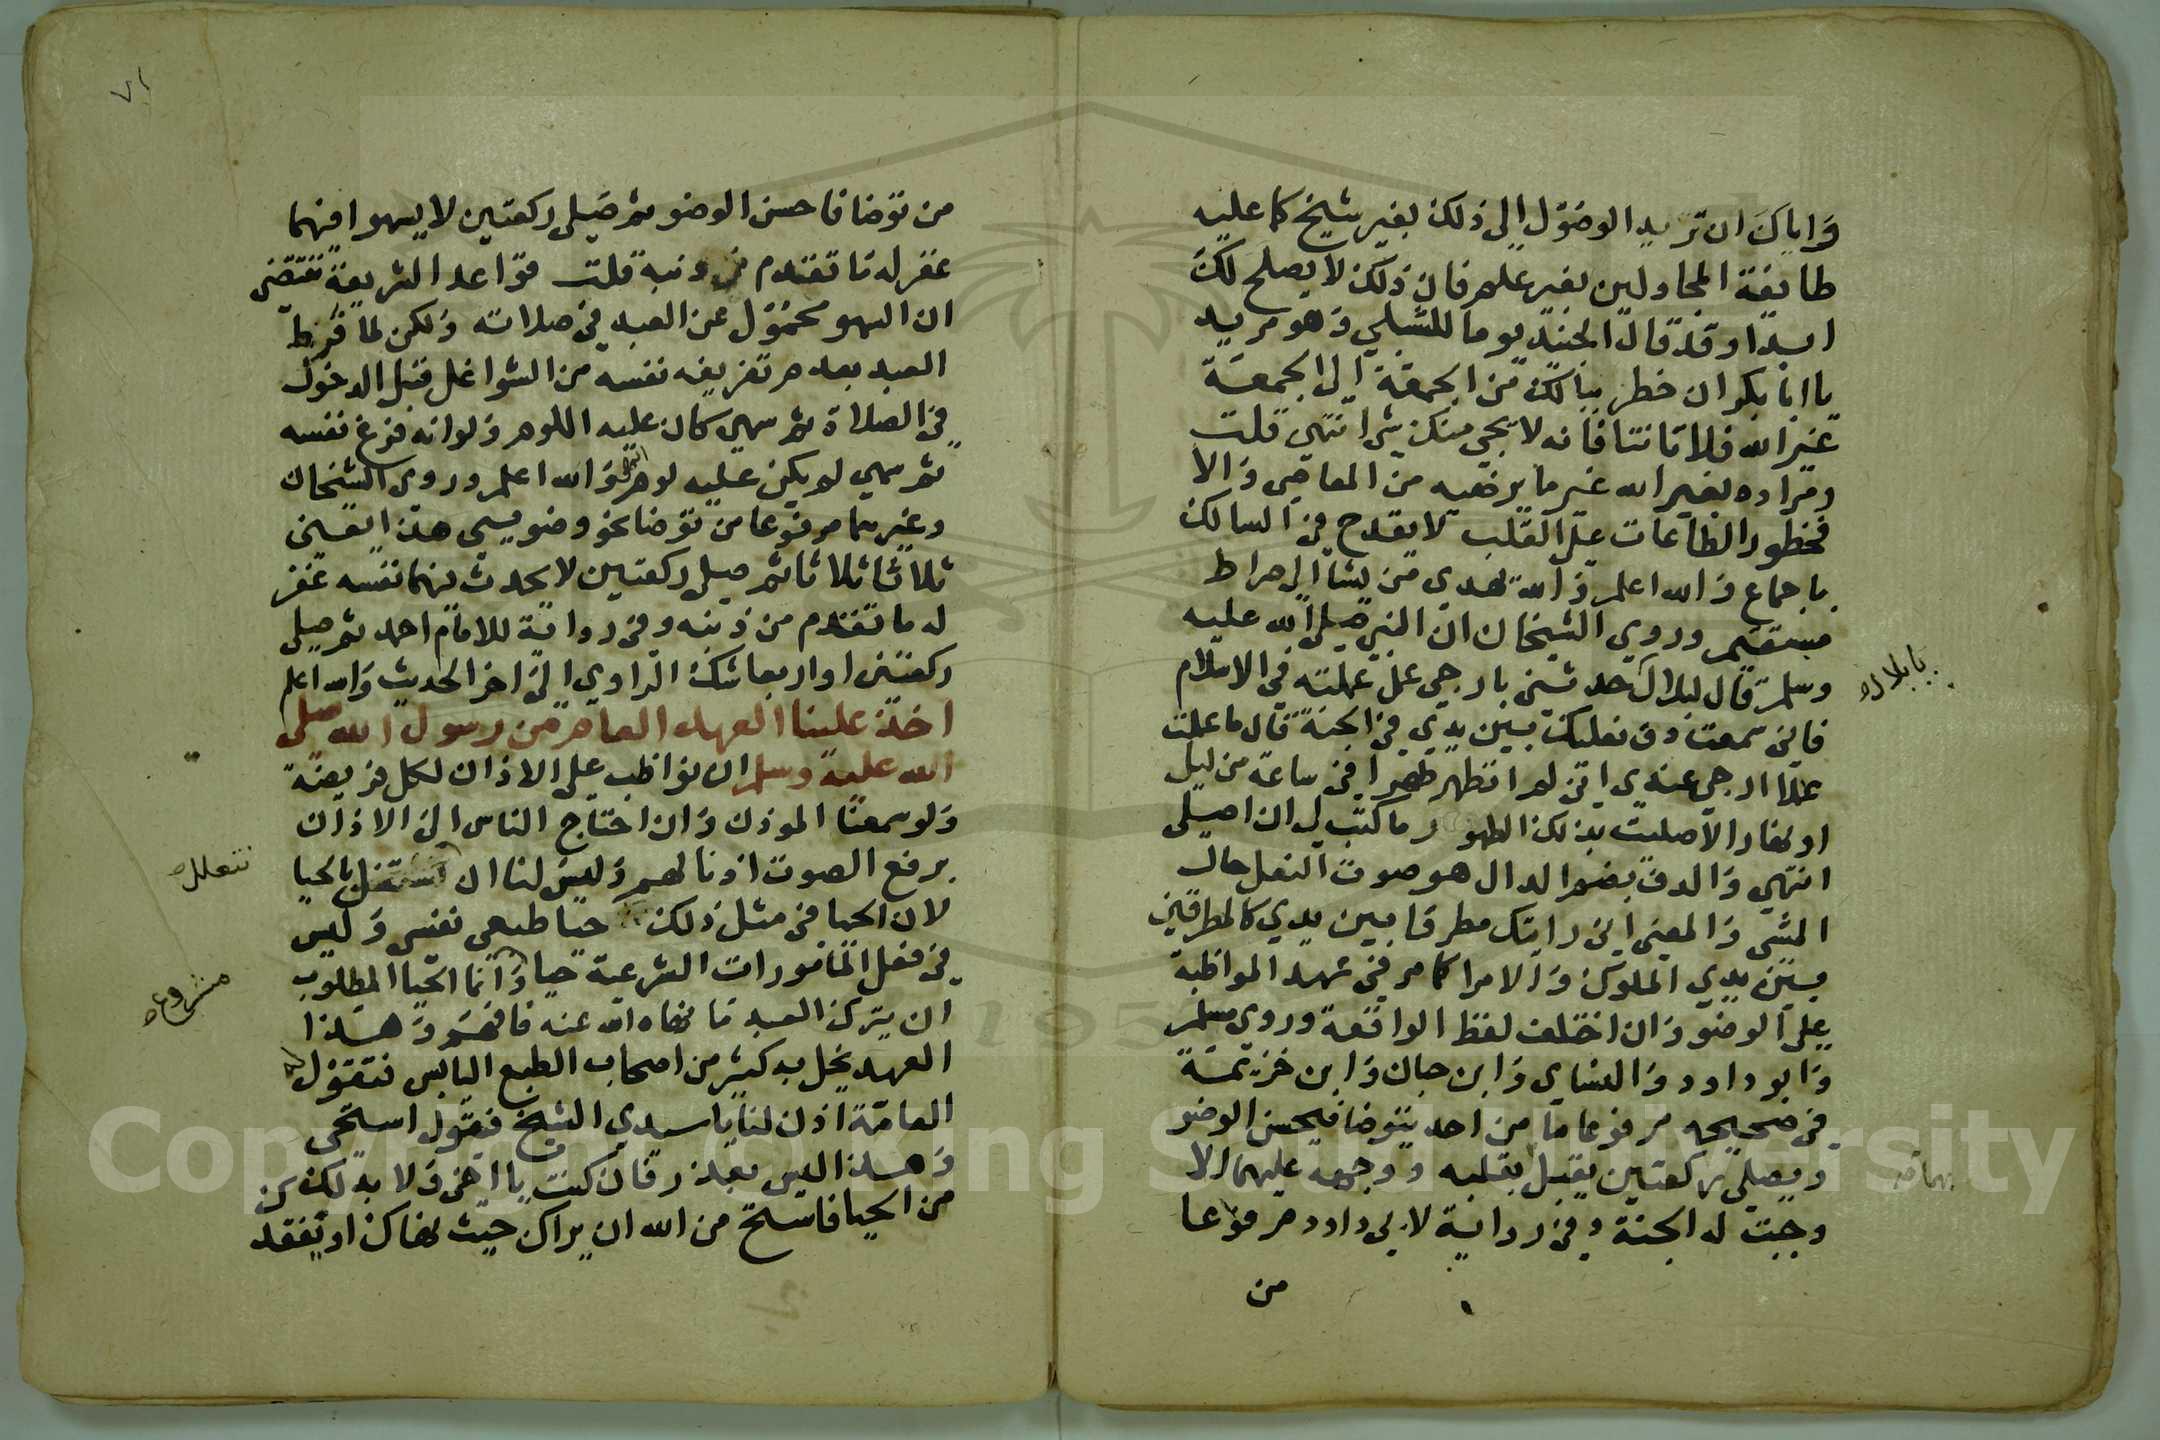 واياك ان تريد الوصول الى ذلك بغير شيخ كما عليه
طايفة المجاولين بغير علم فان ذلك لا يصلح لك
ابدا وقد قال الجنيد يوما للشبلي وهو مريد
يا ابا بكر ان خطر ببالك من الجمعة الى الجمعة
غير الله فلا تاتنا فانه لا يجي منك شي انتهى قلت
ومراده بغير الله غير ما يرضيه من المعاصي والا
فخطور الطاعات على القلب لا يقدح في السالك
باجماع والله اعلم والله يهدي من يشا الى صراط
مستقيم وروى الشيخان ان النبي صلى الله عليه
وسلم قال لبلال حدثني بارجى عمل عملته في الاسلام
يا بلال
فاني سمعت دف نعليك بين يدي في الجنة قال ما عملت
عملا ارجى عندي اني لم اتطهر طهرا في ساعة من ليل
او نهار الا صليت بذلك الطهور ما كتب لي ان اصلي
انتهى والدف بضم الدال هو صوت النعل حال
المشي والمعنى اني رايتك مطرقا بين يدي كالمطرقين
بين يدي الملوك والامرا كما مر في عهد المواظبة
على الوضو وان اختلف لفظ الواقعة وروى مسلم
وابو داود والنساي وابن حبان وابن خزيمة
في صحيحه مرفوعا ما من احد يتوضا فيحسن الوضو
ويصلي ركعتين يقبل بقلبه ووجهه عليهما الا
وجبت له الجنة وفي رواية لابي داود مرفوعا
من
من توضا فاحسن الوضو ثم صلى ركعتين لا يسهوا فيهما
غفر له ما تقدم من ذنبه قلت قواعد الشريعة تقتضي
ان السهو محمول عن العبد في صلاته ولكن لما فرط
العبد بعدم تفريغه نفسه من الشواغل قبل الدخول
في الصلاة ثم سهى كان عليه اللوم ولو انه فرغ نفسه
ثم سهى لم يكن عليه لوم والله اعلم وروى الشيخان
وغيرهما مرفوعا من توضا نحو وضويي هذا يعني
ثلاثا ثلاثا ثم صلى ركعتين لا يحدث فيهما نفسه غفر
له ما تقدم من ذنبه وفي رواية للامام احمد ثم صلى
ركعتين او اربعا شك الراوي الى اخر الحديث والله اعلم
اخذ علينا العهد العام من رسول الله صلى
الله عليه وسلم ان نواظب على الاذان لكل فريضة
ولو سمعنا الموذن وان احتاج الناس الى الاذان
برفع الصوت اذنا لهم وليس لنا ان بالحيا
نتعلل
لان الحيا في مثل ذلك حيا طبعي نفسي وليس
في فعل المامورات الشرعية حيا وانما الحيا المطلوب
مشروع
ان يترك العبد ما نهاه الله عنه فافهم وهذا
العهد يخل به كثير من اصحاب الطبع اليابس فتقول له
العامة اذن لنا يا سيدي الشيخ فيقول استحي
وهذا ليس بعذر فان كنت يا اخي ولا بد لك
من الحيا فاستح من الله ان يراك حيث نهاك او يفقد